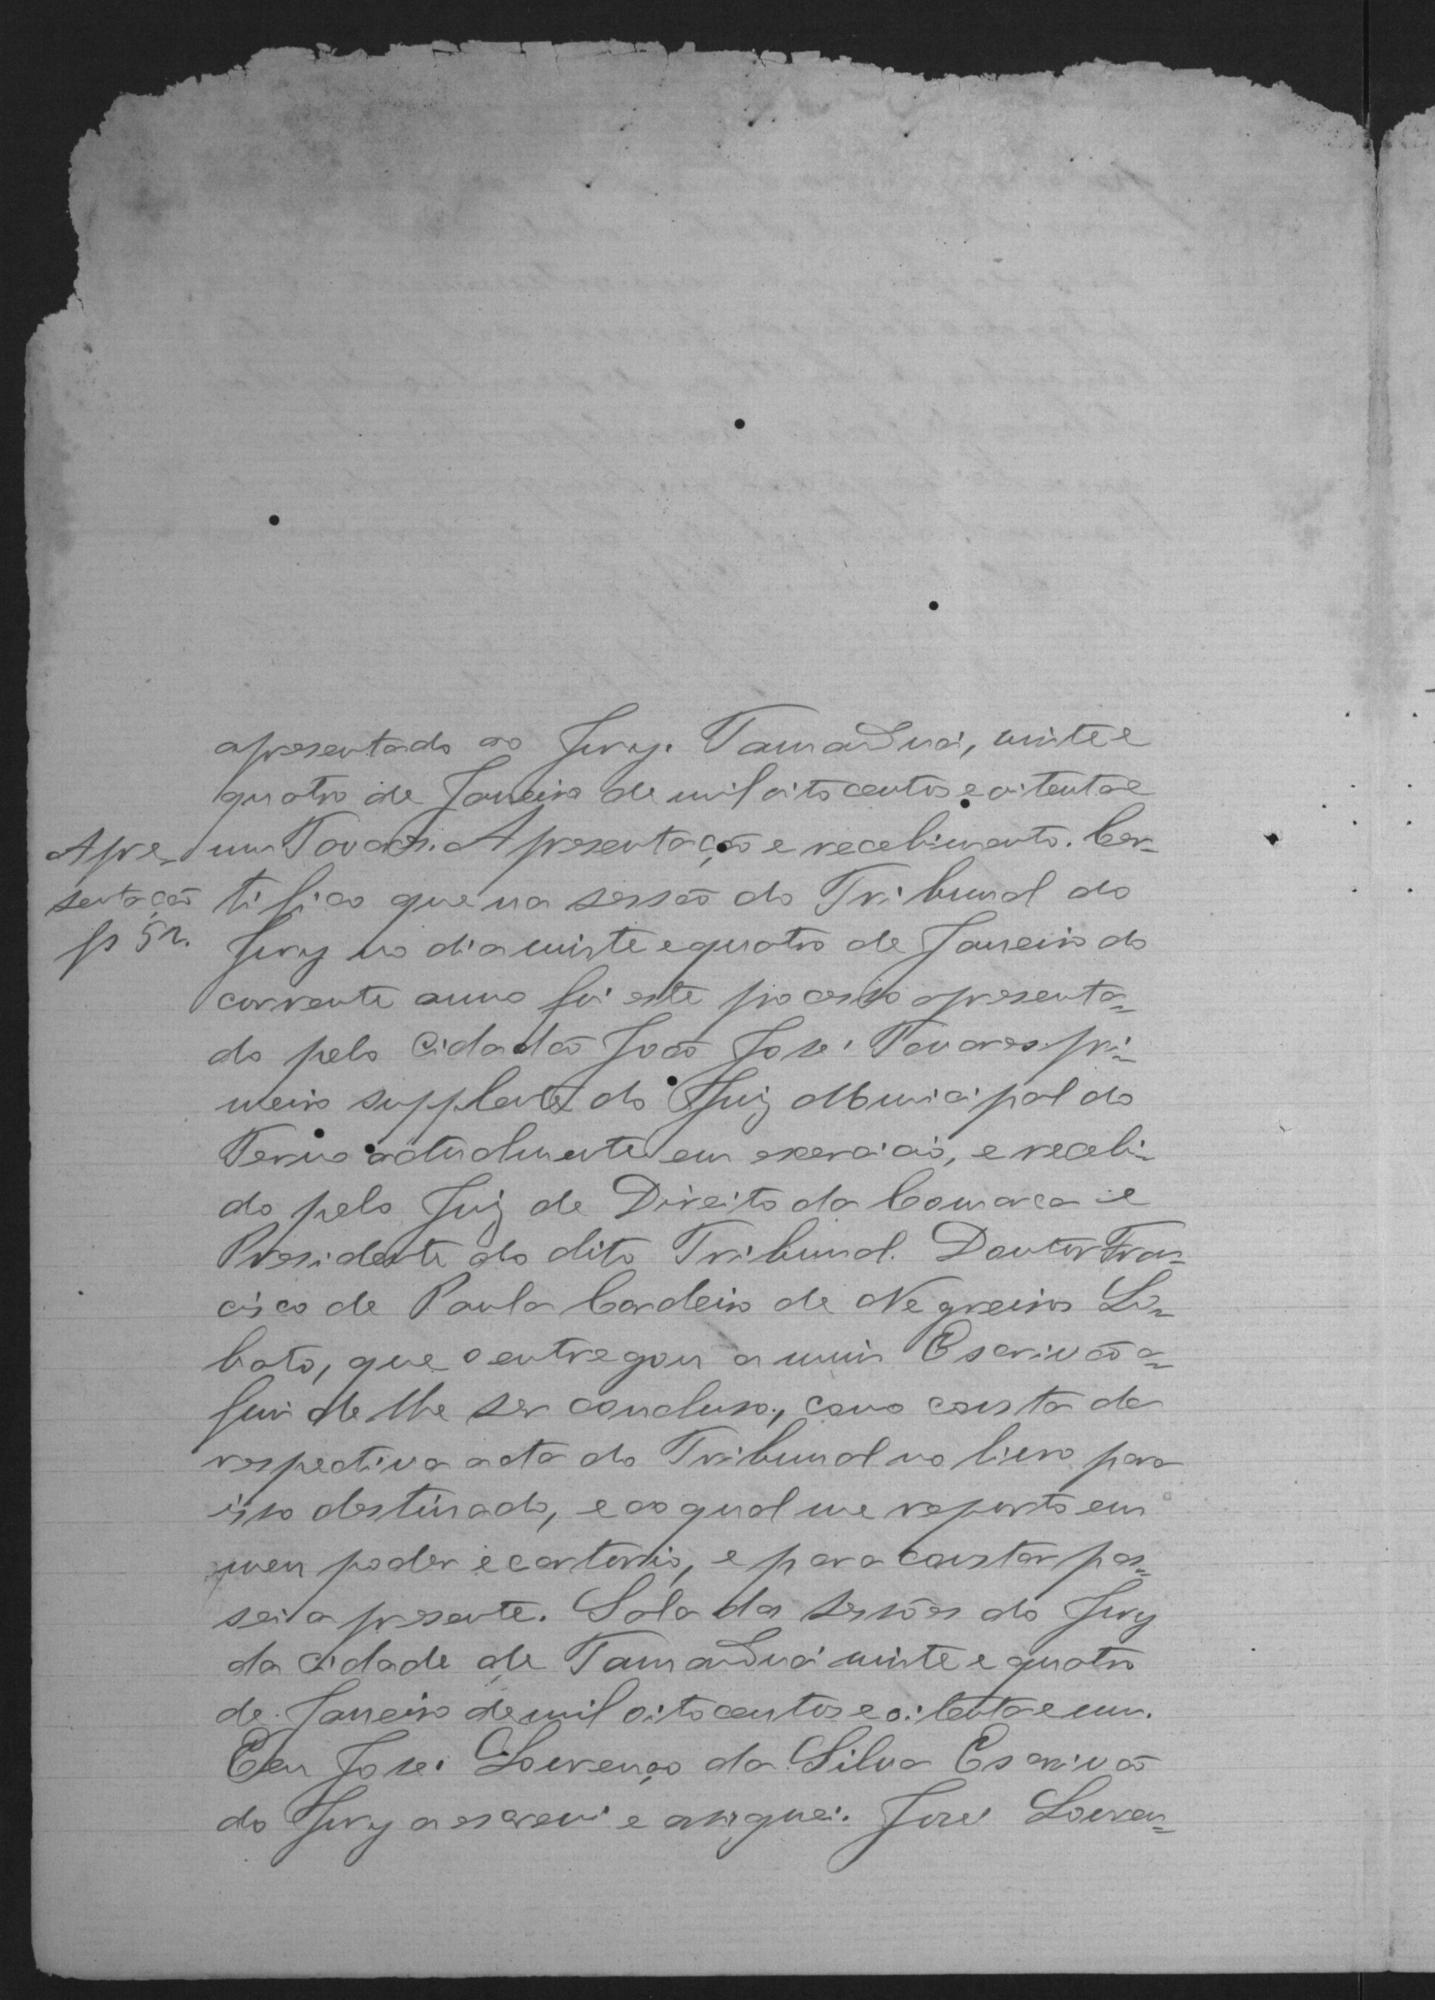 apresentado ao Jury. Tamanduá, vinte e
quatro de Janeiro de mil oito centos e oitenta e
um Tavares. Apresentação e recebimento. Cer=
Apre=
sentação
fs 52.
tifico que na sessão do Tribunal do
Jury no dia vinte e quatro de Janeiro do
corrente anno foi este processo apresenta=
do pelo cidadão João José Tavares pri=
meiro supplente do Juiz Municipal do
Termo actualmente em exercicio, e recebi=
do pelo Juiz de Direito da Comarca e
Presidente do dito Tribunal. Doutor Fran=
cisco de Paula Cordeiro de Negreiros Lo=
bato, que o entregou a mim Escrivão a=
fim de lhe ser concluso, como consta da
respectiva acta do Tribunal no livro para
isso destinado, e ao qual me reporto em
meu poder e cartorio, e para constar pas=
sei a presente. Sala das sessões do Jury
da cidade de Tamanduá vinte e quatro
de Janeiro de mil oito centos e oitenta e um.
Eu José Lourenço da Silva Escrivão
do Jury a escrevi e assignei. José Louren=